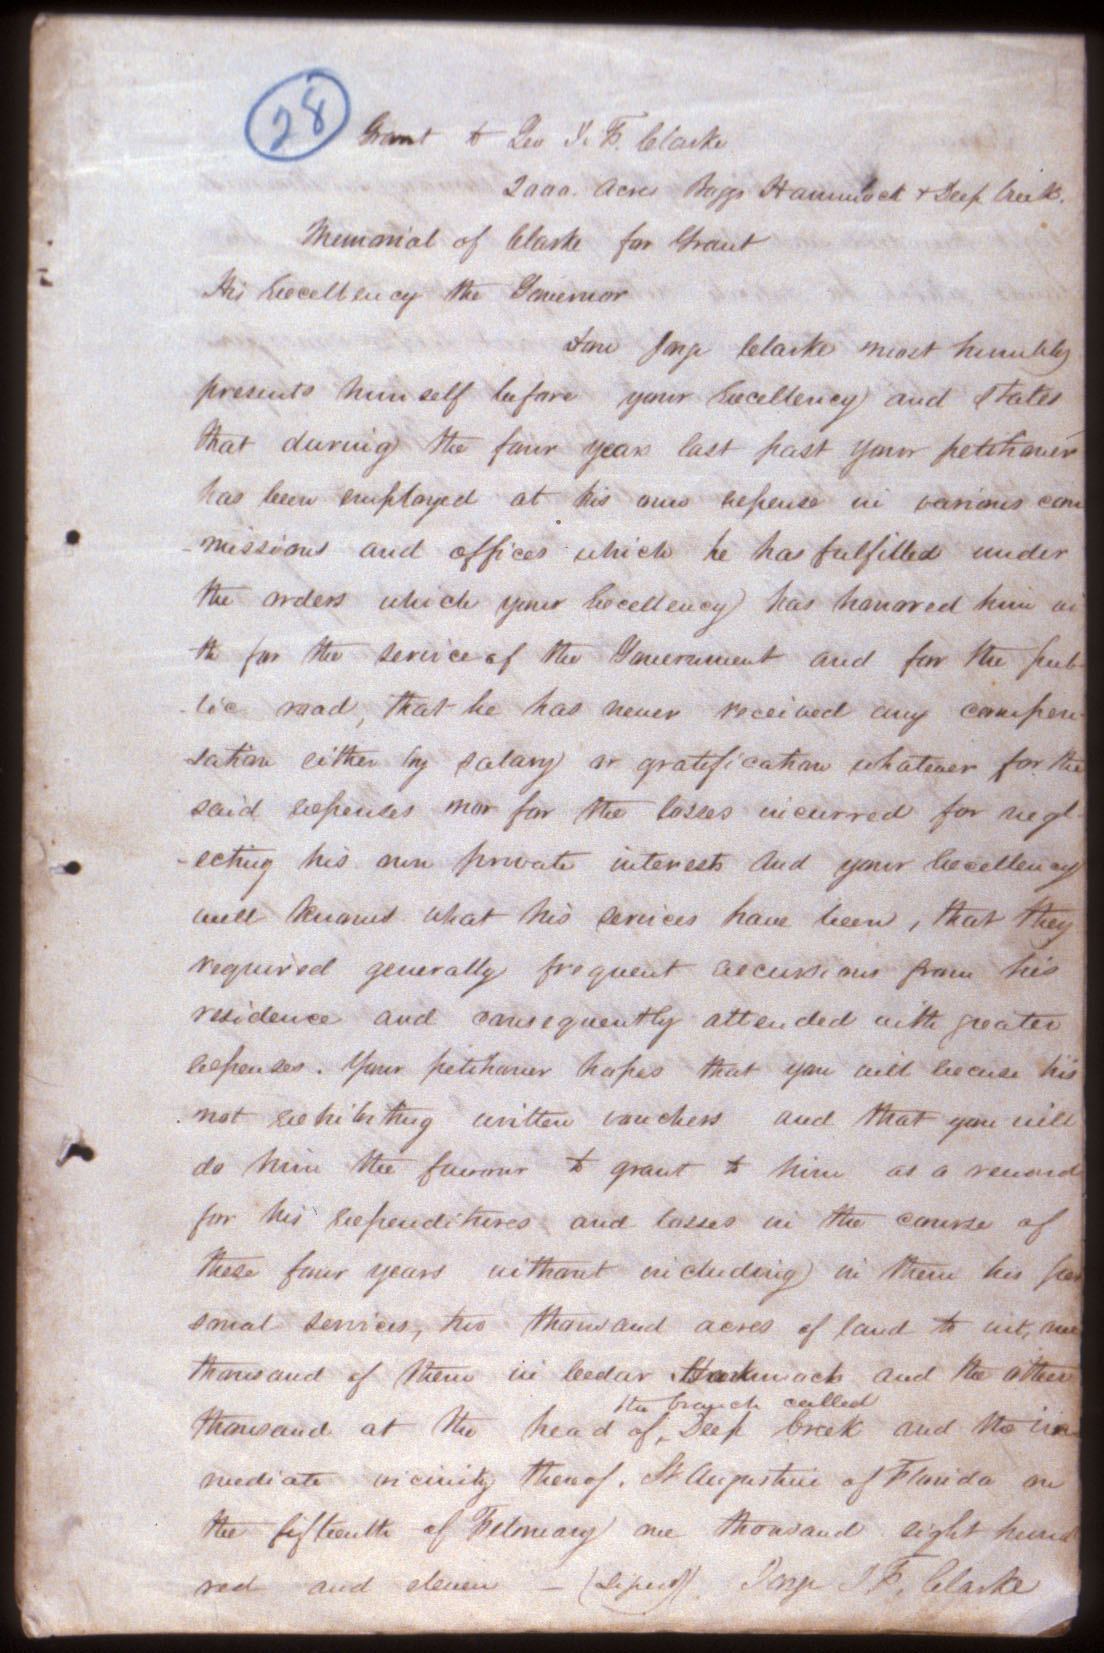 28
Grant to Geo J. F. Clarke
2000. Acres Hammock & Deep Creek.
Memorial of Clarke for Grant
His Excellency the Governor
Don Jorge Clarke most humbly
presents himself before your Excellency and states
that during the four years last past your petitioner
has been employed at his own expense in various com
-missions and offices which he has fulfilled under
the orders which your Excellency has honored him wi
th for the service of the Government and for the pub-
-lic road, that he has never received any compen-
sation either by salary or gratification whatever for the
said expenses nor for the losses incurred for negl-
-ecting his own private interests and your Excellency
well knows what his services have been, that they
required generally frequent excursions from his
residence and consequently attended with greater
expenses. Your petitioner hopes that you will excuse his
not exhibiting written vouchers and that you will
do him the favour to grant to him as a reward
for his expenditures and losses in the course of
these four years without including in them his per
sonal services, two thousand acres of land to wit, one
thousand of them in Cedar Hammock and the other
the branch called
thousand at the head of Deep Creek and the im
mediate vicinity thereof. St Augustine of Florida on
the fifteenth of February one thousand eight hund
red and eleven — (Signed) Jorge J. F. Clarke